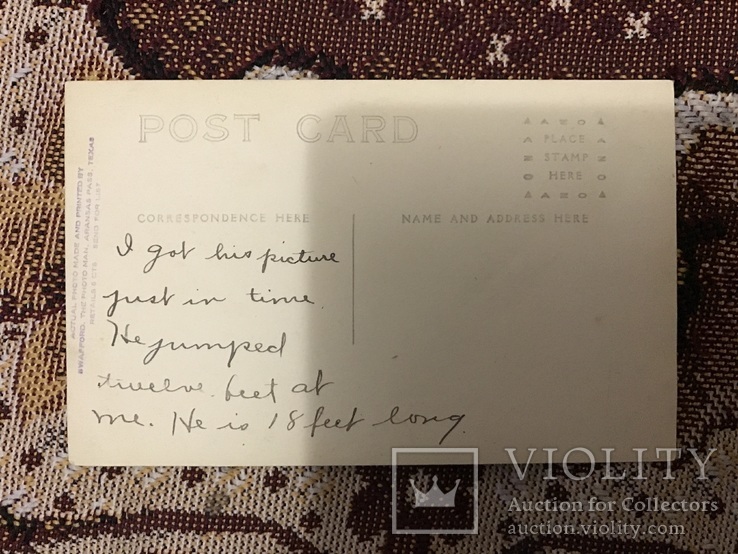 POST CARD
AZO
PLACE
STAMP
HERE
AZO
CORRESPONDENCE HERE
NAME AND ADDRESS HERE
ACTUAL PHOTO MADE AND PRINTED BY
SWAFFORD, THE PHOTO MAN, ARANSAS PASS, TEXAS
RETAILS 5 CTS SEND FOR LIST
I got his picture
just in time.
He jumped
twelve feet at
me. He is 18 feet long.
VIOLITY
Auction for Collectors
auction.violity.com